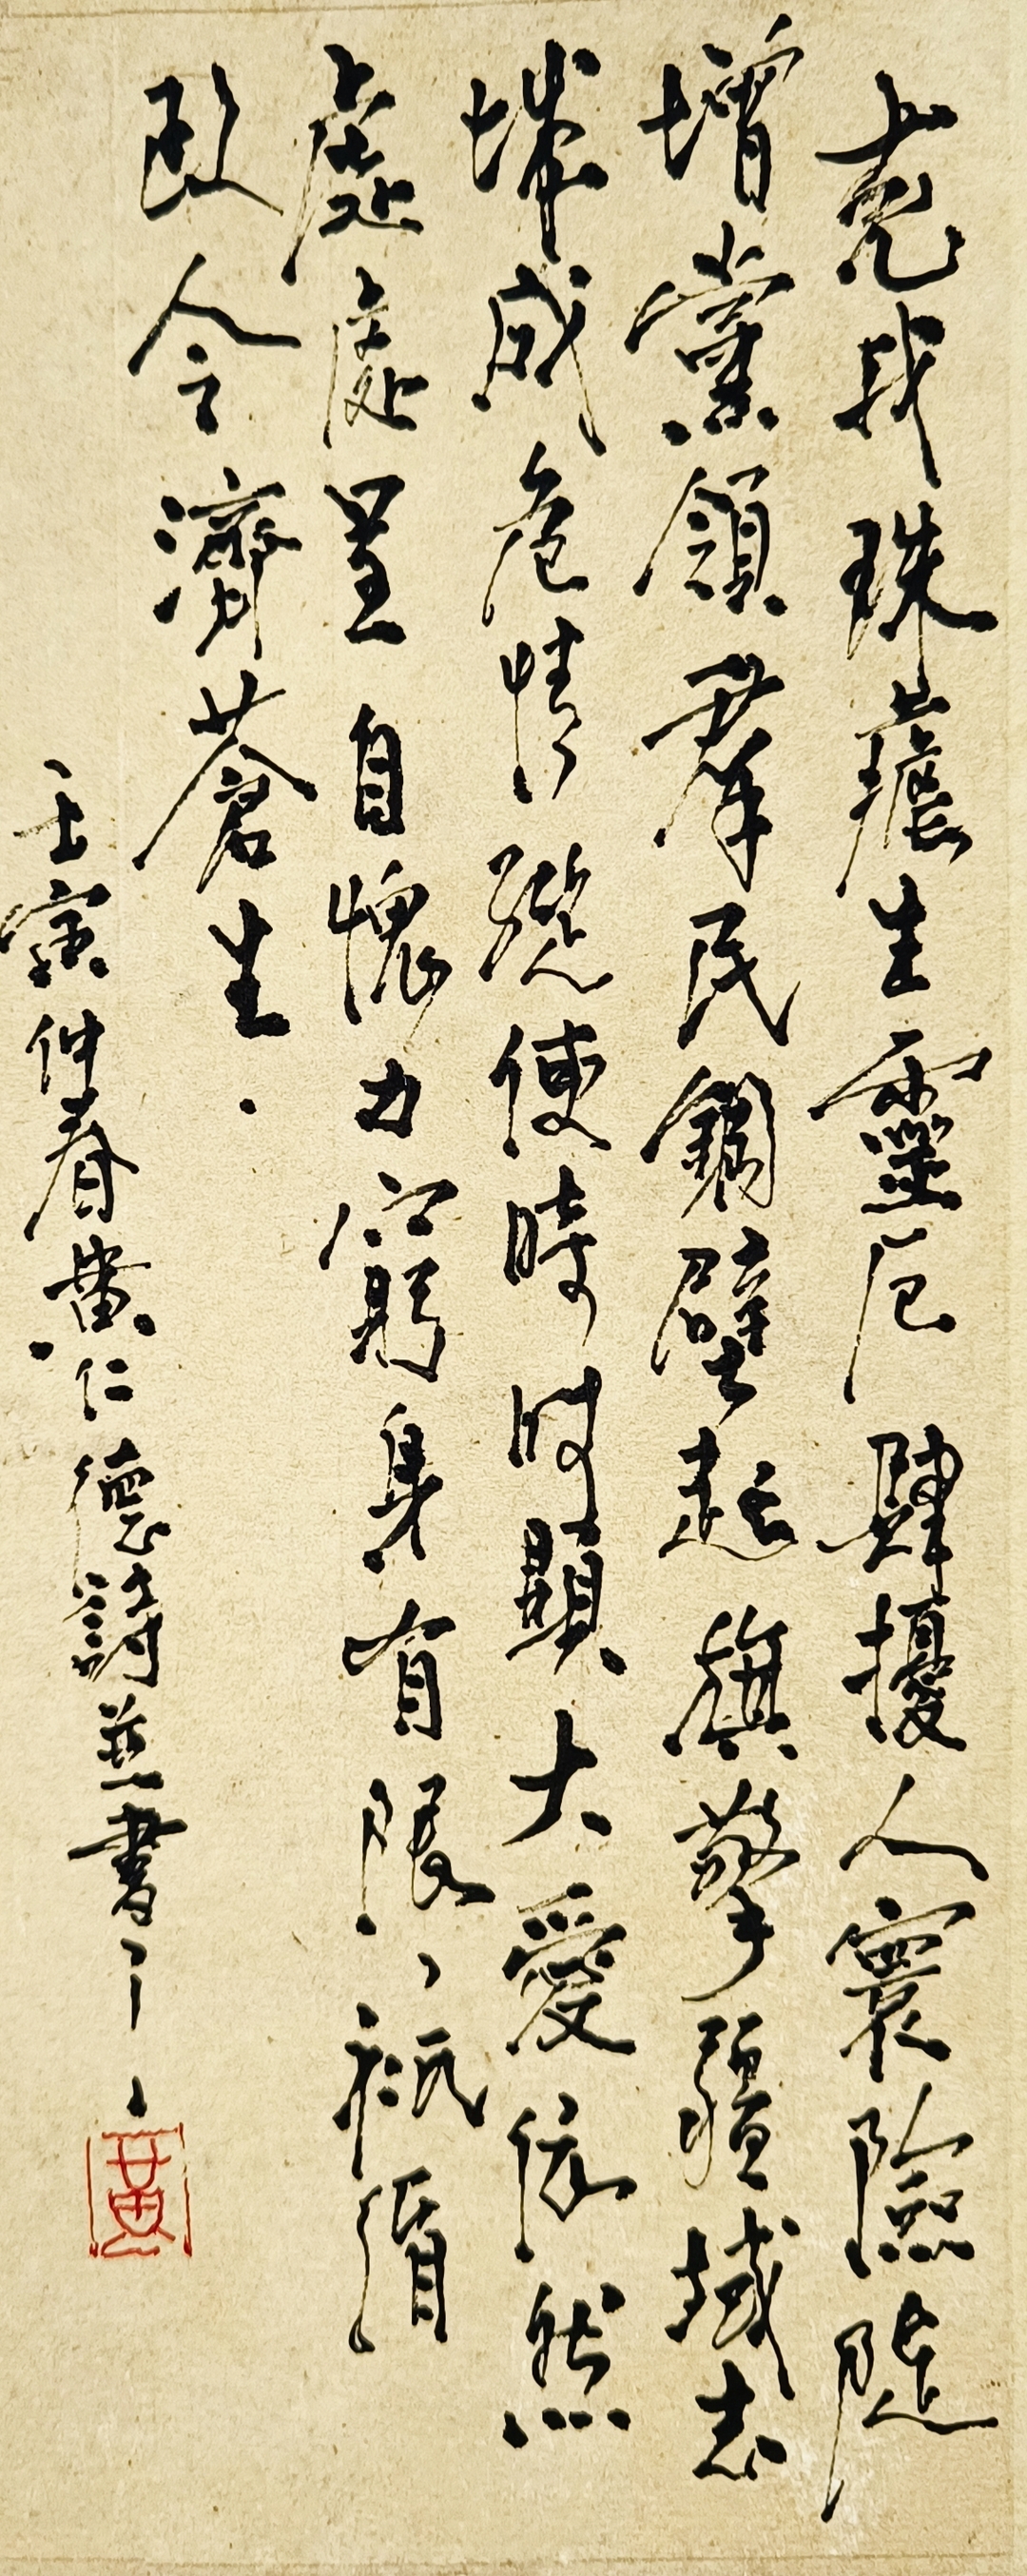 堯我珠痕生靈厄肆擾人寰險陡
增黨領群民鋼壁起旗擎疆域志
城成危情縱使時時顯大愛依然
處處呈自愧力窮身有限祇循
政令濟蒼生
壬寅仲春黃仁德詩並書
黃